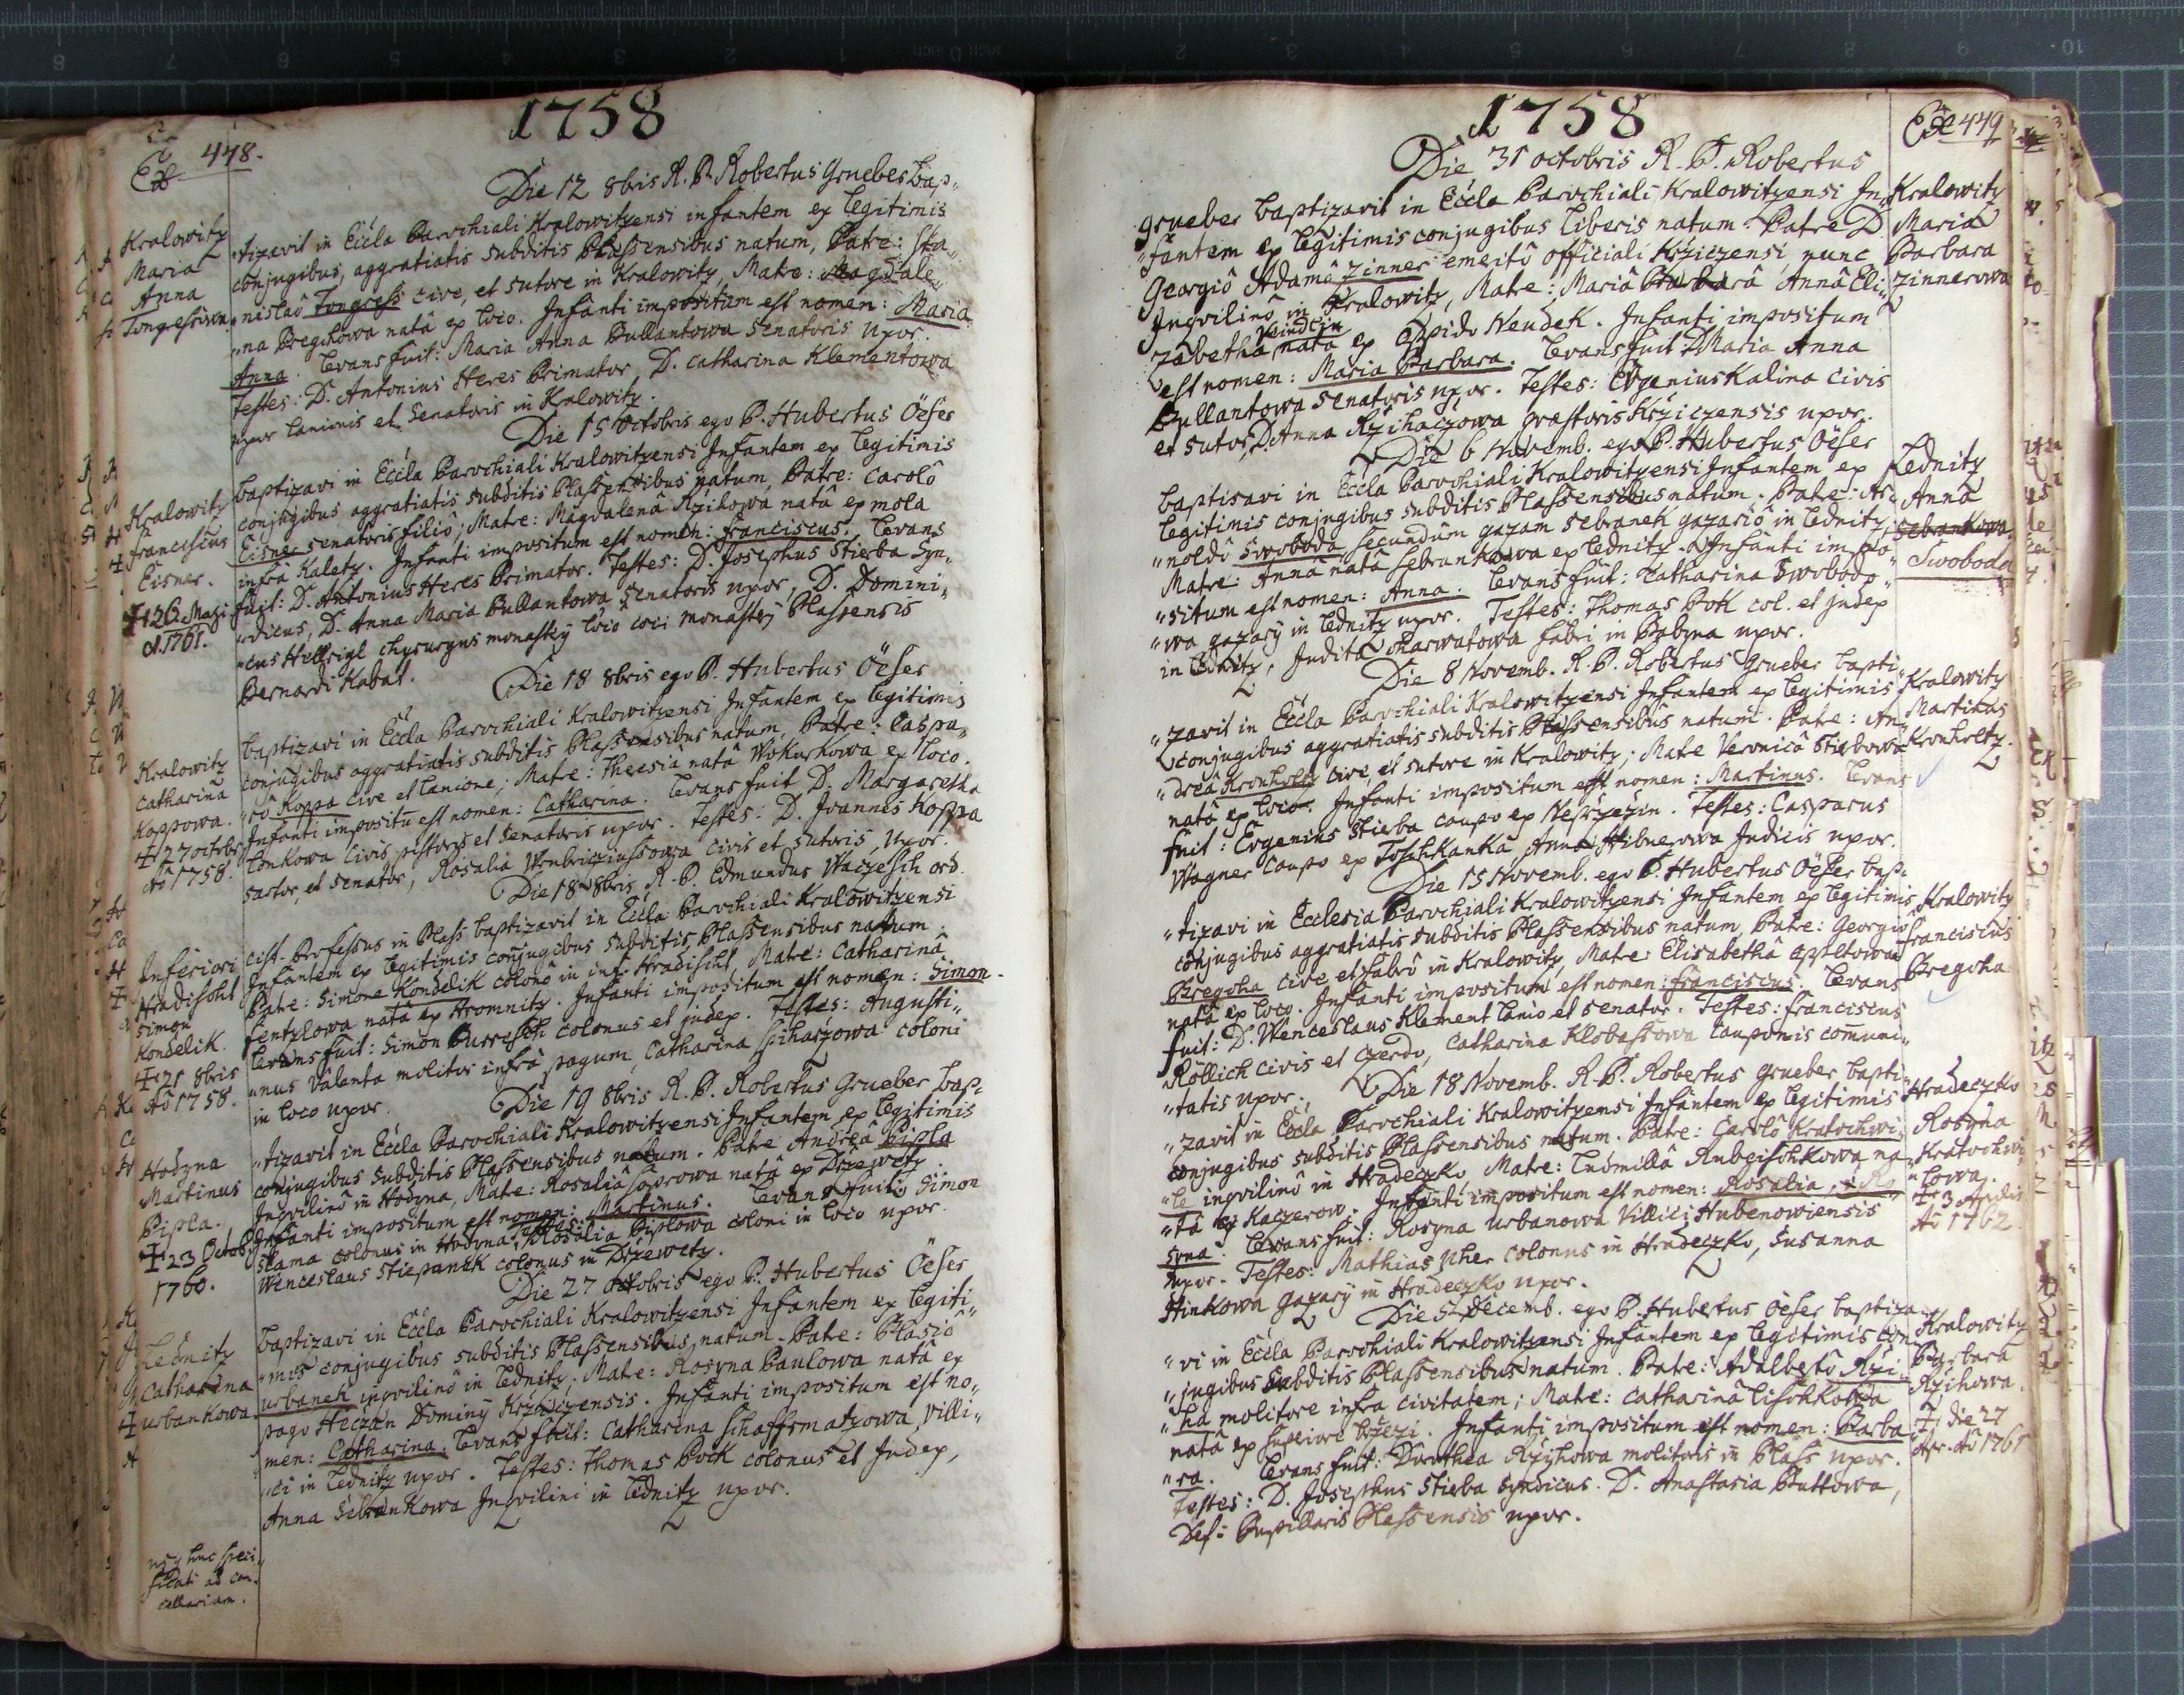 1758
448.
Die 12 8bris R. P. Robertus Grueber bap„
„tizavit in Eccla Parochiali Kralowitzensi infantem ex legitimis
conjugibus, aggratiatis subditis Plassensibus natum, Patre: Sta„
„nislaô Tongress cive, et sutore in Kralowitz, Matre: Magdale„
„na Pregchowa natâ ex loco. Infanti impositum est nomen: Maria
Anna. Levans fuit: Maria Anna Bullantowa Senatoris uxor.
Testes: D. Antonius Heres Primator, D. Catharina Klementowa
uxor lanionis et Senatoris in Kralowitz.
Kralowitz
Maria
Anna
Tongessowa
Die 15 Octobris ego P. Hubertus Öeser
baptizavi in Eccla Parochiali Kralowitzensi Infantem ex legitimis
conjugibus aggratiatis subditis Plassensibus natum, Patre: Carolô
Eisner senatoris filiô; Matre: Magdalenâ Rzihowa natâ ex mola
infrâ Kaletz. Infanti impositum est nomen: Franciscus. Levans
fuit: D. Antonius Heres Primator. Testes: D. Josephus Stierba Syn„
„dicus, D. Anna Maria Bullantowa Senatoris uxor, D. Domini„
„cus Hellrigl chyrurgus monastery loco loci monastery Plassensis
Bernardi Kabat.
Kralowitz
Franciscus
Eisner.
‡ 26. Maji
A. 1761.
Die 18 8bris ego P. Hubertus Öeser
baptizavi in Eccla Parochiali Kralowitzensi Infantem ex legitimis
conjugibus aggratiatis subditis Plassensibus natum, Patre: Caspa„
„rô Koppa cive et lanione; Matre: Theresiâ natâ Wokurkowa ex loco.
Infanti impositū est nomen: Catharina. Levans fuit D. Margaretha
Lonkowa civis pistoris et senatoris uxor. Testes: D. Joannes Koppa
sartor, et senator, Rosalia civis et sutoris, uxor.
Kralowitz
Catharina
Koppowa.
‡ 27 octobr
Aô 1758.
Die 18 8bris R. P. Edmundus Waczesch ord.
cist. Professus in Plass baptizavit in Eccla Parochiali Kralowitzensi
Infantem ex legitimis conjugibus subditis Plassensibus natum.
Patre: Simone Kondelik colonô in inf. Hradischt Matre: Catharinâ
Fentzlowa natâ ex Hromnitz. Infanti impositum est nomen: Simon.
Levans fuit: Simon Burrisch colonus et judex. Testes: Augusti„
„nus Valenta molitor infrâ pagum, Catharina coloni
in loco uxor.
Inferiori
Hradischt
Simon
Kondelik.
‡ 21 8bris
Aô 1758.
Die 19 8bris R. P. Robertus Grueber bap„
„tizavit in Eccla Parochiali Kralowitzensi Infantem ex legitimis
conjugibus subditis Plassensibus natum. Patre Andreâ Pisla
Inqvilinô in Hodyna, Matre: Rosaliâ natâ ex Drzewetz.
Infanti impositum est nomen: Martinus. Levans fuit: Simon
Slama colonus in Hodyna, Testes: Rosalia Pislowa coloni in loco uxor.
Wenceslaus Stiepanek colonus in Drzewetz.
Hodyna
Martinus
Pisla.
‡ 23 Octob
1760.
Die 27 Octobris ego P. Hubertus Öeser
baptizavi in Eccla Parochiali Kralowitzensi Infantem ex legiti„
„mis conjugibus subditis Plassensibus natum. Patre: Blasiô
Urbanek inqvilinô in Lednitz, Matre: Rosyna Paulowa natâ ex
pago Heczan Dominy Krzicizensis. Infanti impositum est no„
men: Catharina. Levans fuit: Catharina Schaffrmatzowa villi„
„ci in Lednitz uxor. Testes: Thomas Bock colonus et Judex,
Anna Sebrankowa Inqvilini in Lednitz uxor.
Lednitz
Catharina
Urbankowa
usq huc speci„
ficati ad can„
cellariam.
1758
449
Die 31 octobris R. P. Robertus
Grueber baptizavit in Eccla Parochiali Kralowitzensi In„
„fantem ex legitimis conjugibus liberis natum. Patre D.
Georgiô Adamô Zinner emeritô officiali Krziczensi, nunc
Inqvilinô in Kralowitz, Matre: Mariâ Barbarâ Annâ Eli„
zabethâ natâ ex Oppido Neudek. Infanti impositum
est nomen: Maria Barbara. Levans fuit Maria Anna
Bullantowa Senatoris uxor. Testes: Evgenius Kalina civis
et sutor, D. Anna Rzihaczowa praetoris Krziczensis uxor.
Kralowitz
Maria
Barbara
Zinnerowa
Die 6 Novemb. ego P. Hubertus Öeser
baptisavi in Eccla Parochiali Kralowitzensi Infantem ex
legitimis conjugibus subditis Plassensibus natum. Patre: Ar„
„noldô Swoboda secundum gazam Sebranek gazariô in Lednitz,
Matre: Anna natâ Sebrankowa ex Lednitz. Infanti impo„
„situm est nomen: Anna. Levans fuit: Catharina Swobodo„
„wa gazarÿ in Lednitz uxor. Testes: Thomas Bok col. et judex
in Lednitz, Judita Charwatowa fabri in Babyna uxor.
Lednitz
Anna
Sebrankowa.
Swoboda
Die 8 Novemb. R. P. Robertus Grueber bapti„
„zavit in Eccla Parochiali Kralowitzensi Infantem ex legitimis
conjugibus aggratiatis subditis Plassensibus natum. Patre: An„
„dreâ Kronholtz cive, et sutore in Kralowitz; Matre Veronicâ Stierbowa
natâ ex loco. Infanti impositum est nomen: Martinus. Levans
fuit: Evgenius Stierba caupo ex Neprzezin. Testes: Casparus
Wagner caupo ex Toschkanka Anna Hibnerowa Judicis uxor.
Kralowitz
Martinus
Kronholtz.
Die 15 Novemb. ego P. Hubertus Öeser bap„
„tizavi in Ecclesia Parochiali Kralowitzensi Infantem ex legitimis
conjugibus aggratiatis subditis Plassensibus natum, Patre: Georgiô
Pregcha cive, et fabrô in Kralowitz, Matre: Elisabethâ
natâ ex loco. Infanti impositum est nomen: Franciscus. Levans
fuit: D. Wenceslaus Klement lanio et senator. Testes: Franciscus
Röllich civis et Czerdo, Catharina Klobassowa cauponis com̄uni„
„tatis uxor.
Kralowitz
Franciscus
Pregcha
Die 18 Novemb. R. P. Robertus Grueber bapti„
„zavit in Eccla Parochiali Kralowitzensi Infantem ex legitimis
conjugibus subditis Plassensibus natum. Patre: Carolô Kratochwi„
„le inqvilinô in Hradeczko, Matre: Ludmillâ Rubeischkowa na„
„tâ ex Kaczerow. Infanti impositum est nomen: Rosalia, Ro„
syna. Levans fuit: Rosyna Urbanowa Villici Hubenowiensis
uxor. Testes: Mathias Uher colonus in Hradeczko, Susanna
Hinkowa gazarÿ in Hradeczko uxor.
Hradeczko
Rosyna
Kratochwi„
„lowa.
‡ 3 Aprilis
Aô 1762.
Die 5 Decemb. ego P. Hubertus Öeser baptiza„
„vi in Eccla Parochiali Kralowitzensi Infantem ex legitimis con„
„jugibus subditis Plassensibus natum. Patre: Adalbertô Rzi„
„ha molitore infra civitatem; Matre: Catharinâ Lischkowa
natâ ex superiore Brzezi. Infanti impositum est nomen: Barba„
„ra. Levans fuit: Dorothea Rzihowa molitoris in Plass uxor.
Testes: D. Josephus Stierba Syndicus. D. Anastasia Buttowa,
Def: Pupillaris Plassensis uxor.
Kralowitz
Barbara
Rzihowa.
‡ die 27
Apr. Aô 1761